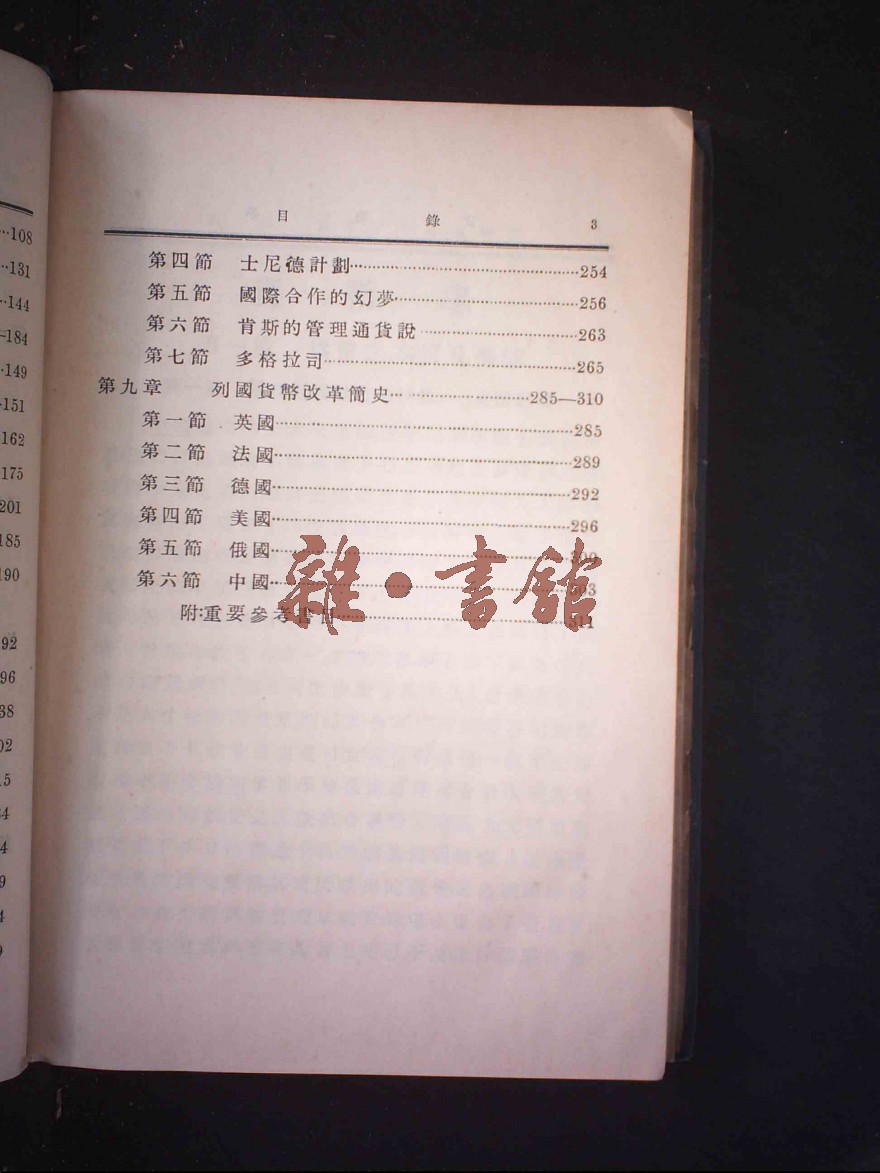 目錄 3
第四節 士尼德計劃……254
第五節 國際合作的幻夢……256
第六節 肯斯的管理通貨說……263
第七節 多格拉司……265
第九章 列國貨幣改革簡史……285—310
第一節 英國……285
第二節 法國……289
第三節 德國……292
第四節 美國……296
第五節 俄國……
第六節 中國……303
附:重要參考書目……311
雜·書館
…108
…131
…144
—184
…149
…151
162
175
201
185
190
92
96
38
02
15
4
9
4